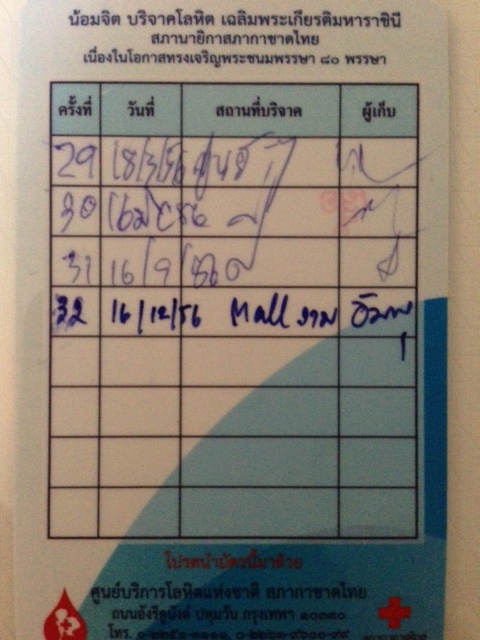 น้อมจิต บริจาคโลหิต เฉลิมพระเกียรติมหาราชินี
สภานายิกาสภากาชาดไทย
เนื่องในโอกาสทรงเจริญพระชนมพรรษา ๘๐ พรรษา
ครั้งที่ วันที่ สถานที่บริจาค ผู้เก็บ
29 18/3/56
30
31 16/9/56
32 16/12/56 Mall งาม
โปรดนำบัตรนี้มาด้วย
ศูนย์บริการโลหิตแห่งชาติ สภากาชาดไทย
ถนนอังรีดูนังต์ ปทุมวัน กรุงเทพฯ ๑๐๓๓๐
โทร.